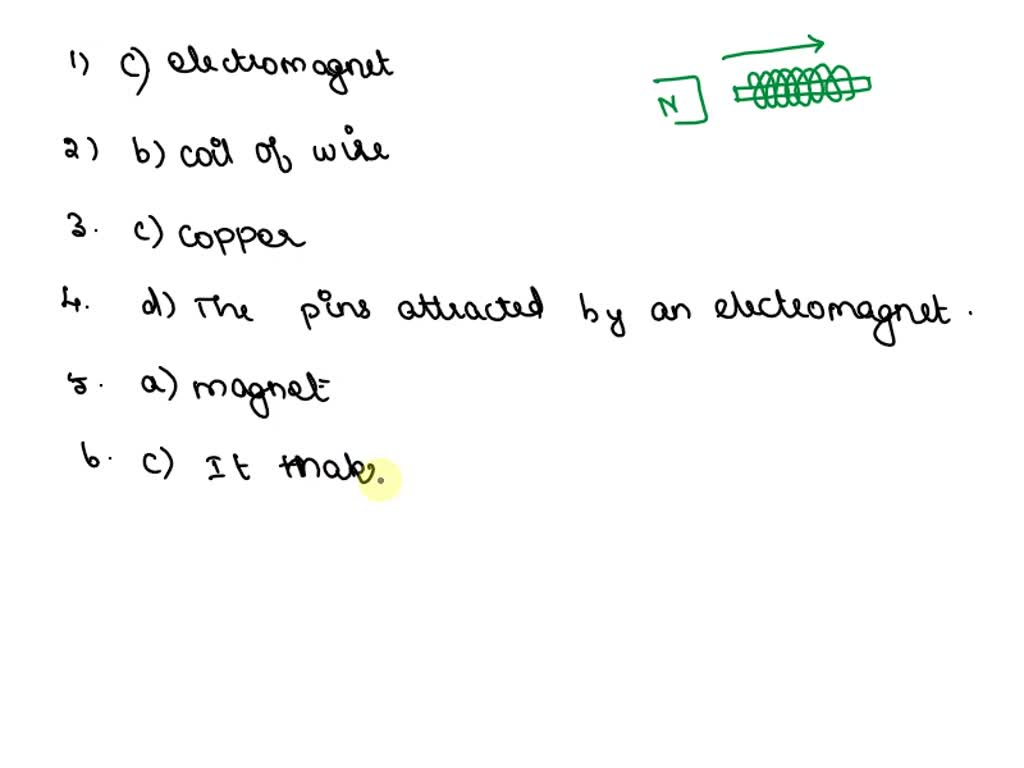 1) c) electromagnet
N
2) b) coil of wire
3. c) copper
4. d) The pins attracted by an electromagnet.
5. a) magnet
6. c) It mak